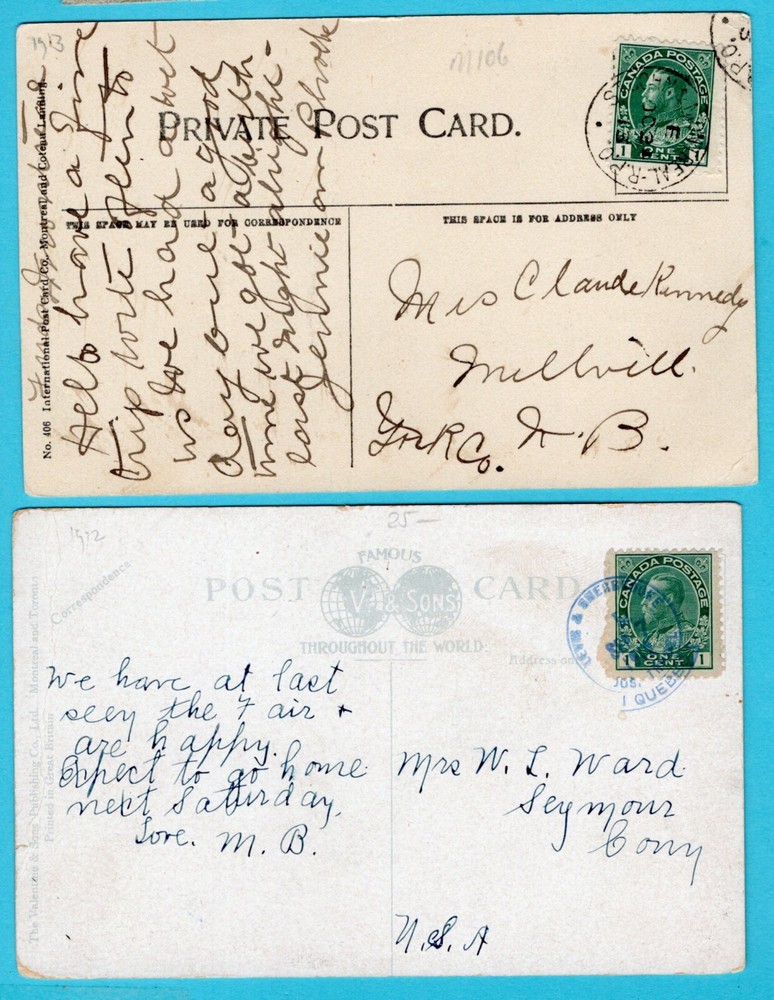 1913
M106
PRIVATE POST CARD.
CANADA POSTAGE
1 ONE CENT 1
R.P.O.
THIS SPACE MAY BE USED FOR CORRESPONDENCE
THIS SPACE IS FOR ADDRESS ONLY
No. 406 International Post Card Co., Montreal and Coteau Landing
Hello have a fine
trip with Glen to
us we had a wet
day one a good
time we got a
last night alright
Jennie
Mrs Claude Kennedy
Millvill.
York Co. N. B.
1912
25—
Correspondence
POST CARD
FAMOUS
V. & SONS
THROUGHOUT THE WORLD
Address on
CANADA POSTAGE
1 ONE CENT 1
LEVIS & SHERBROOKE
JOS.
QUEBEC
The Valentine & Sons Publishing Co., Ltd. Montreal and Toronto
Printed in Great Britain
We have at last
seey the Fair +
are happy.
Expect to go home
next Saturday.
Love. M. B.
Mrs W. L. Ward
Seymour
Conn
U.S.A